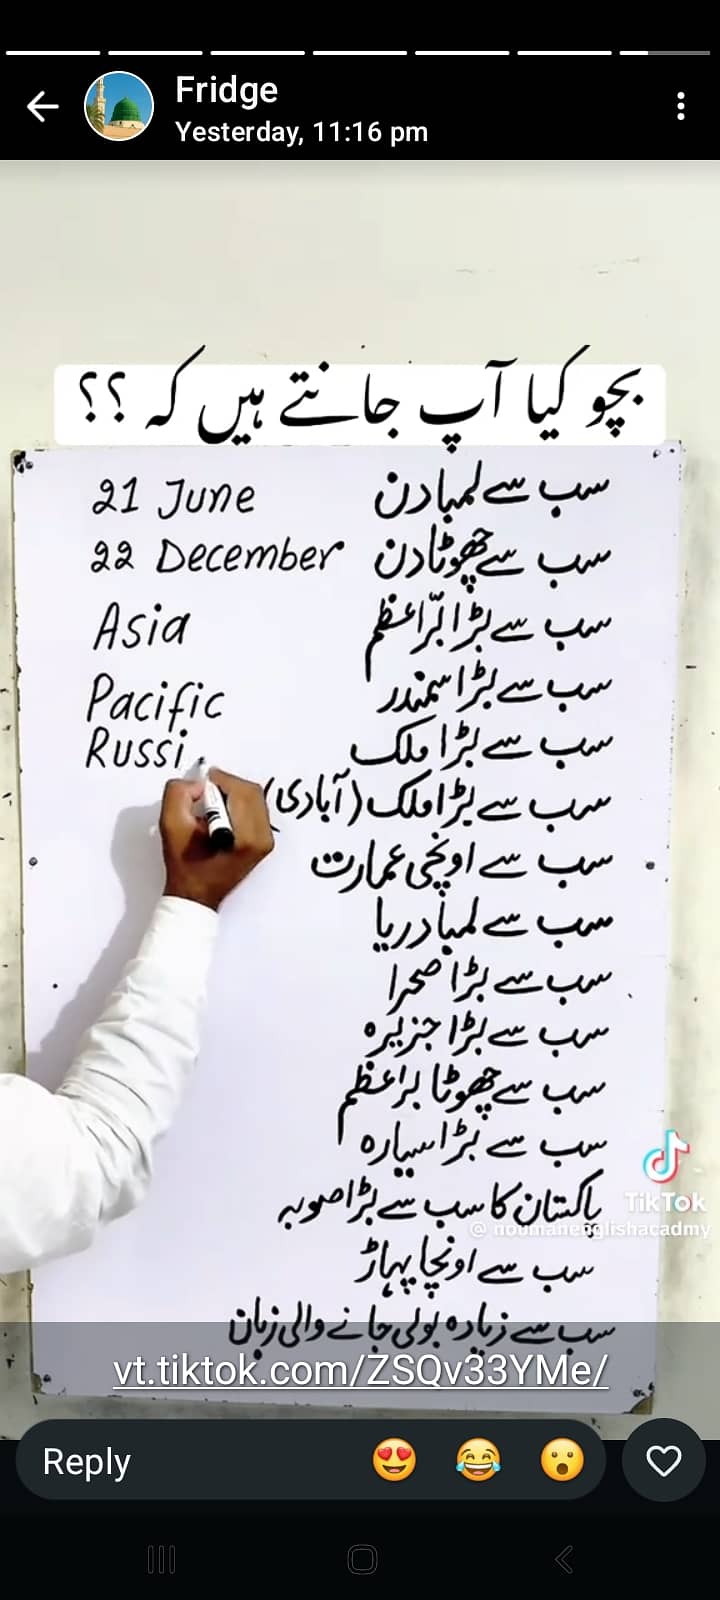 Fridge
Yesterday, 11:16 pm
بچو کیا آپ جانتے ہیں کہ ؟؟
سب سے لمبا دن 21 June
سب سے چھوٹا دن 22 December
سب سے بڑا برّاعظم Asia
سب سے بڑا سمندر Pacific
سب سے بڑا ملک Russi
سب سے بڑا ملک (آبادی)
سب سے اونچی عمارت
سب سے لمبا دریا
سب سے بڑا صحرا
سب سے بڑا جزیرہ
سب سے چھوٹا براعظم
سب سے بڑا سیارہ
پاکستان کا سب سے بڑا صوبہ
سب سے اونچا پہاڑ
سب سے زیادہ بولی جانے والی زبان
TikTok
@noumanenglishacadmy
vt.tiktok.com/ZSQv33YMe/
Reply